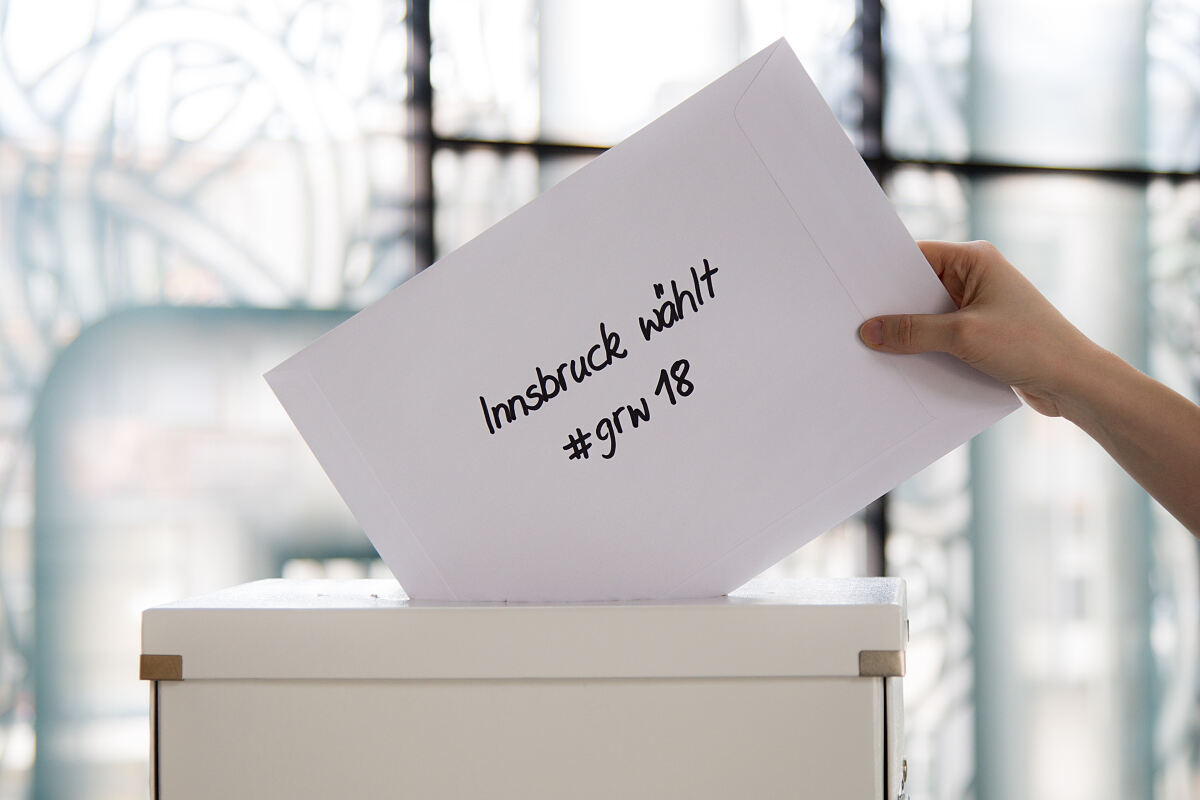 Innsbruck wählt
#grw 18